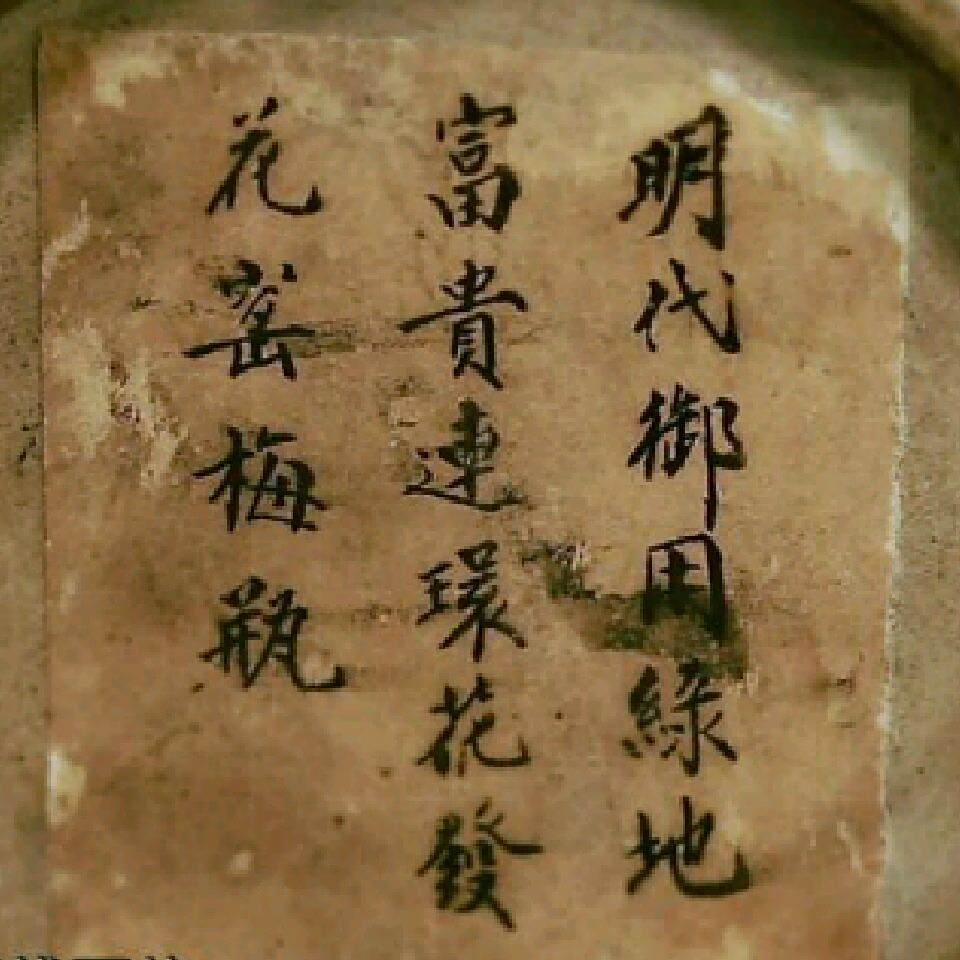 明代御用綠地
富貴連環花發
花窯梅瓶